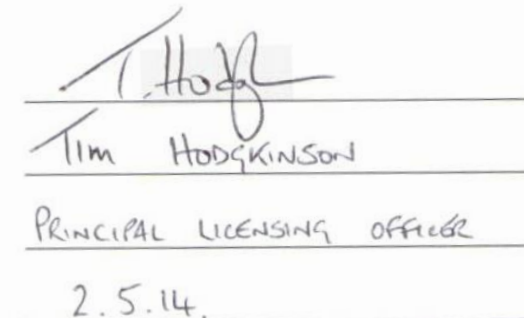 T. Hodg
Tim HODGKINSON
PRINCIPAL LICENSING OFFICER
2.5.14.